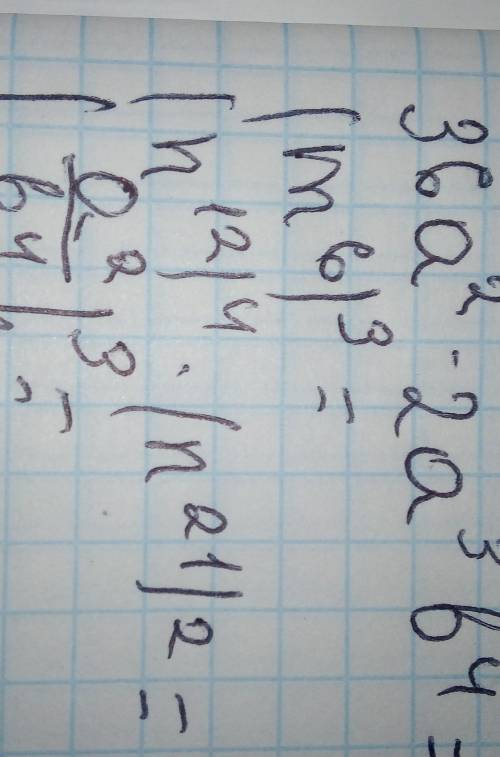 36a² · 2a³b⁴ =
(m⁶)³ =
(n¹²)⁴ · (n²¹)² =
(a²/b⁴)³ =